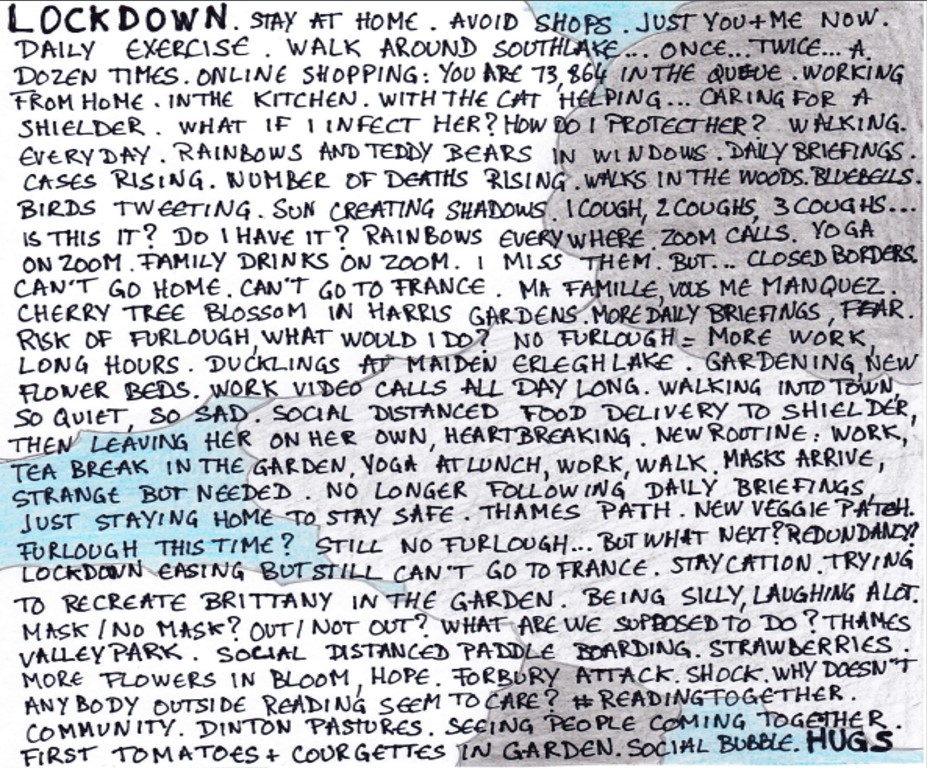 LOCKDOWN. STAY AT HOME. AVOID SHOPS. JUST YOU+ME NOW.
DAILY EXERCISE. WALK AROUND SOUTHLAKE... ONCE... TWICE... A
DOZEN TIMES. ONLINE SHOPPING: YOU ARE 73,864 IN THE QUEUE. WORKING
FROM HOME. IN THE KITCHEN. WITH THE CAT HELPING... CARING FOR A
SHIELDER. WHAT IF I INFECT HER? HOW DO I PROTECT HER? WALKING.
EVERY DAY. RAINBOWS AND TEDDY BEARS IN WINDOWS. DAILY BRIEFINGS.
CASES RISING. NUMBER OF DEATHS RISING. WALKS IN THE WOODS. BLUEBELLS.
BIRDS TWEETING. SUN CREATING SHADOWS. 1 COUGH, 2 COUGHS, 3 COUGHS...
IS THIS IT? DO I HAVE IT? RAINBOWS EVERYWHERE. ZOOM CALLS. YOGA
ON ZOOM. FAMILY DRINKS ON ZOOM. I MISS THEM. BUT... CLOSED BORDERS.
CAN'T GO HOME. CAN'T GO TO FRANCE. MA FAMILLE, VOUS ME MANQUEZ.
CHERRY TREE BLOSSOM IN HARRIS GARDENS. MORE DAILY BRIEFINGS, FEAR.
RISK OF FURLOUGH, WHAT WOULD I DO? NO FURLOUGH = MORE WORK,
LONG HOURS. DUCKLINGS AT MAIDEN ERLEGH LAKE. GARDENING, NEW
FLOWER BEDS. WORK VIDEO CALLS ALL DAY LONG. WALKING INTO TOWN,
SO QUIET, SO SAD. SOCIAL DISTANCED FOOD DELIVERY TO SHIELDER,
THEN LEAVING HER ON HER OWN, HEARTBREAKING. NEW ROUTINE: WORK,
TEA BREAK IN THE GARDEN, YOGA AT LUNCH, WORK, WALK. MASKS ARRIVE,
STRANGE BUT NEEDED. NO LONGER FOLLOWING DAILY BRIEFINGS,
JUST STAYING HOME TO STAY SAFE. THAMES PATH. NEW VEGGIE PATCH.
FURLOUGH THIS TIME? STILL NO FURLOUGH... BUT WHAT NEXT? REDUNDANCY?
LOCKDOWN EASING BUT STILL CAN'T GO TO FRANCE. STAYCATION. TRYING
TO RECREATE BRITTANY IN THE GARDEN. BEING SILLY, LAUGHING A LOT.
MASK / NO MASK? OUT / NOT OUT? WHAT ARE WE SUPPOSED TO DO? THAMES
VALLEY PARK. SOCIAL DISTANCED PADDLE BOARDING. STRAWBERRIES.
MORE FLOWERS IN BLOOM, HOPE. FORBURY ATTACK. SHOCK. WHY DOESN'T
ANYBODY OUTSIDE READING SEEM TO CARE? #READINGTOGETHER.
COMMUNITY. DINTON PASTURES. SEEING PEOPLE COMING TOGETHER.
FIRST TOMATOES + COURGETTES IN GARDEN. SOCIAL BUBBLE. HUGS